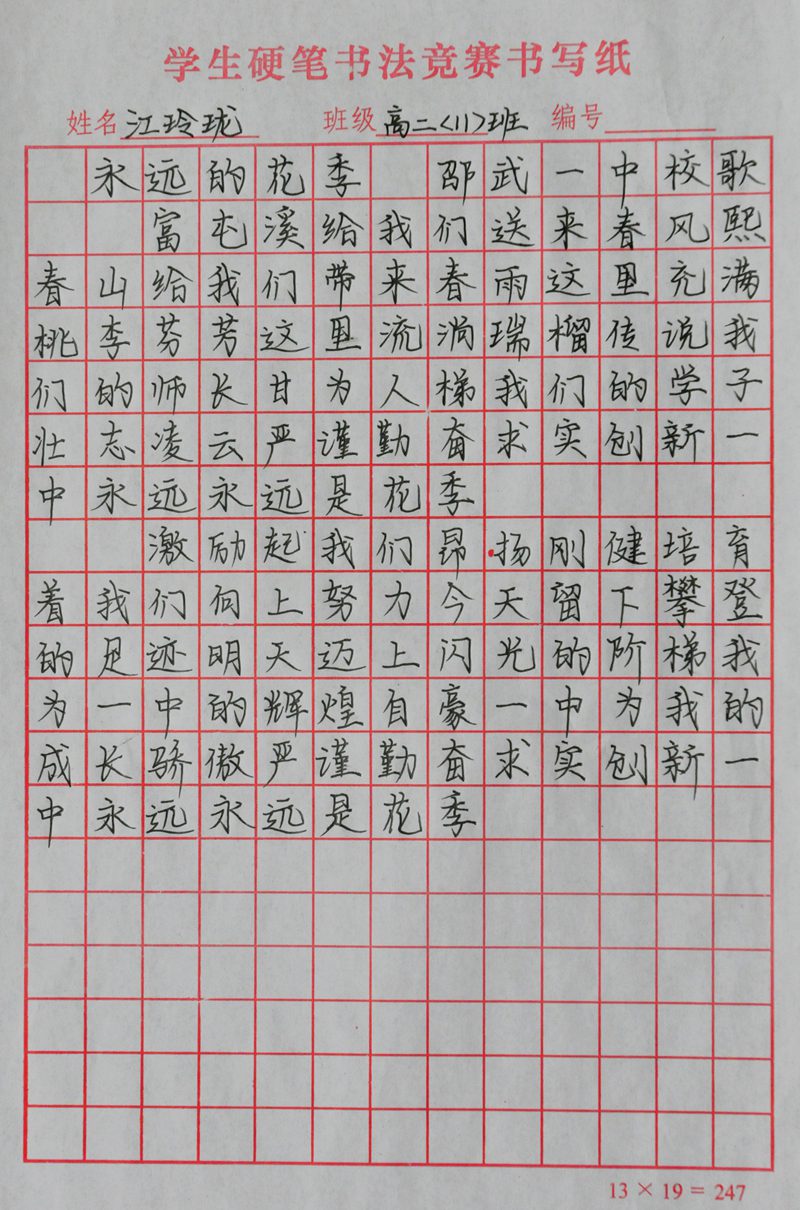 学生硬笔书法竞赛书写纸
姓名 江玲珑 班级 高二〈11〉班 编号
永远的花季 邵武一中校歌
富屯溪给我们送来春风熙
春山给我们带来春雨这里充满
桃李芬芳这里流淌瑞榴传说我
们的师长甘为人梯我们的学子
壮志凌云严谨勤奋求实创新一
中永远永远是花季
激励起我们昂扬刚健培育
着我们向上努力今天留下攀登
的足迹明天迈上闪光的阶梯我
为一中的辉煌自豪一中为我的
成长骄傲严谨勤奋求实创新一
中永远永远是花季
13 × 19 = 247